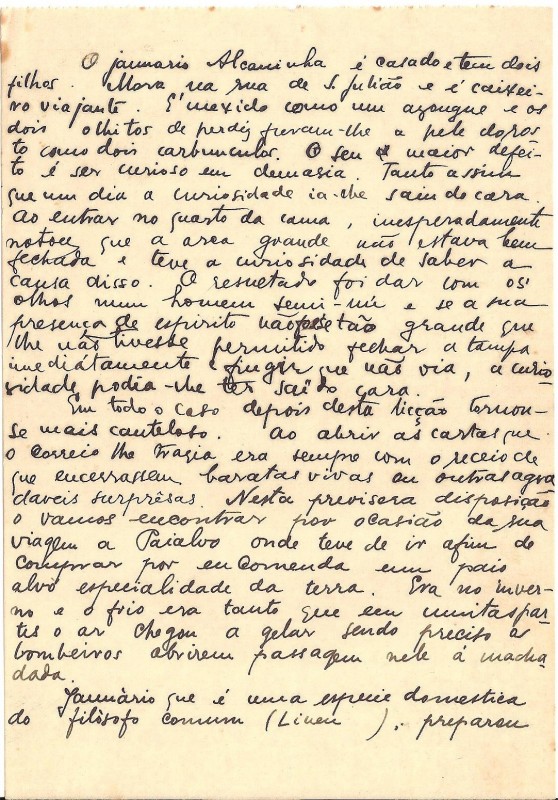 O januario Alcaninha é casado e tem dois
filhos. Mora na rua de S. Julião e é caixei-
ro viajante. É mexido como um azougue e os
dois olhitos de perdiz furam-lhe a pele do ros
to como dois carbunculos. O seu maior defei-
to é ser curioso em demasia. Tanto assim
que um dia a curiosidade ia-lhe saindo cara.
Ao entrar no quarto da cama, inesperadamente
notou que a arca grande não estava bem
fechada e teve a curiosidade de saber a
causa disso. O resultado foi dar com os
olhos num homem semi-nú e se a sua
presença de espirito não fosse tão grande que
lhe não tivesse permitido fechar a tampa
imediatamente e fingir que não via, a curio-
sidade podia-lhe ter saído cara.
Em todo o caso depois desta licção tornou-
se mais cauteloso. Ao abrir as cartas que
o correio lhe trazia era sempre com o receio de
que encerrassem baratas vivas ou outras agra
daveis surprêsas. Nesta previsora disposição
o vamos encontrar por ocasião da sua
viagem a Paialvo onde teve de ir afim de
comprar por encomenda um paio
alvo especialidade da terra. Era no inver-
no e o frio era tanto que em muitas par-
tes o ar chegou a gelar sendo preciso os
bombeiros abrirem passagem nele á macha
dada.
Januàrio que é uma especie domestica
do filòsofo comum (Lineu ), preparou